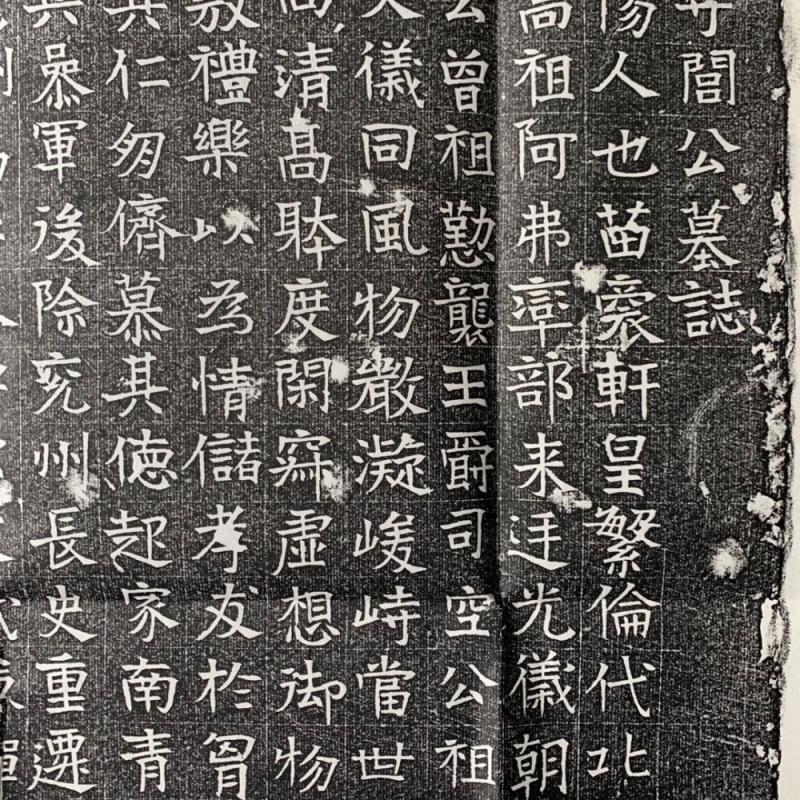 閭公墓誌
人也苗裔軒皇繁倫代北
高祖阿弗率部来迋光儀朝
公曾祖懃襲王爵司空公祖
儀同風物嚴凝峻峙當世
清髙躰度閑寂虛想御物
敦禮樂以為情儲孝友於胷
仁朋儕慕其德起家南青
兵叅軍後除兖州長史重遷